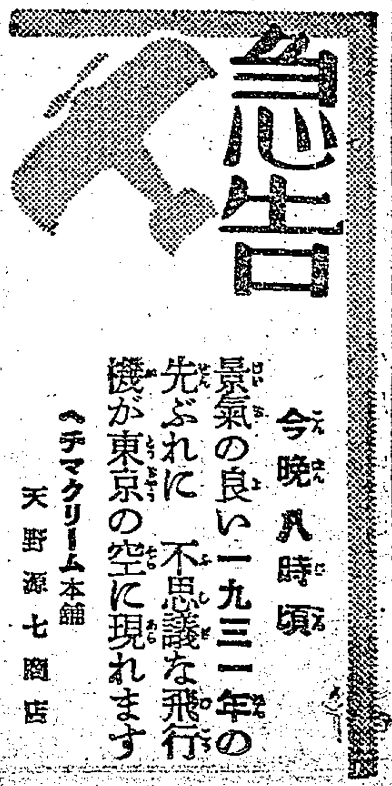 急告
今晩八時頃
景氣の良い一九三一年の
先ぶれに 不思議な飛行
機が東京の空に現れます
ヘチマクリーム本舗
天野源七商店